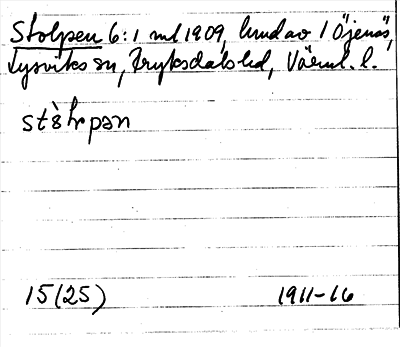 Stolpen 6:1 mt 1909, hmd av 1 Öjenäs,
Lysviks sn, Fryksdals hd, Värml. l.
stòl̥pən
15(25) 1911-16